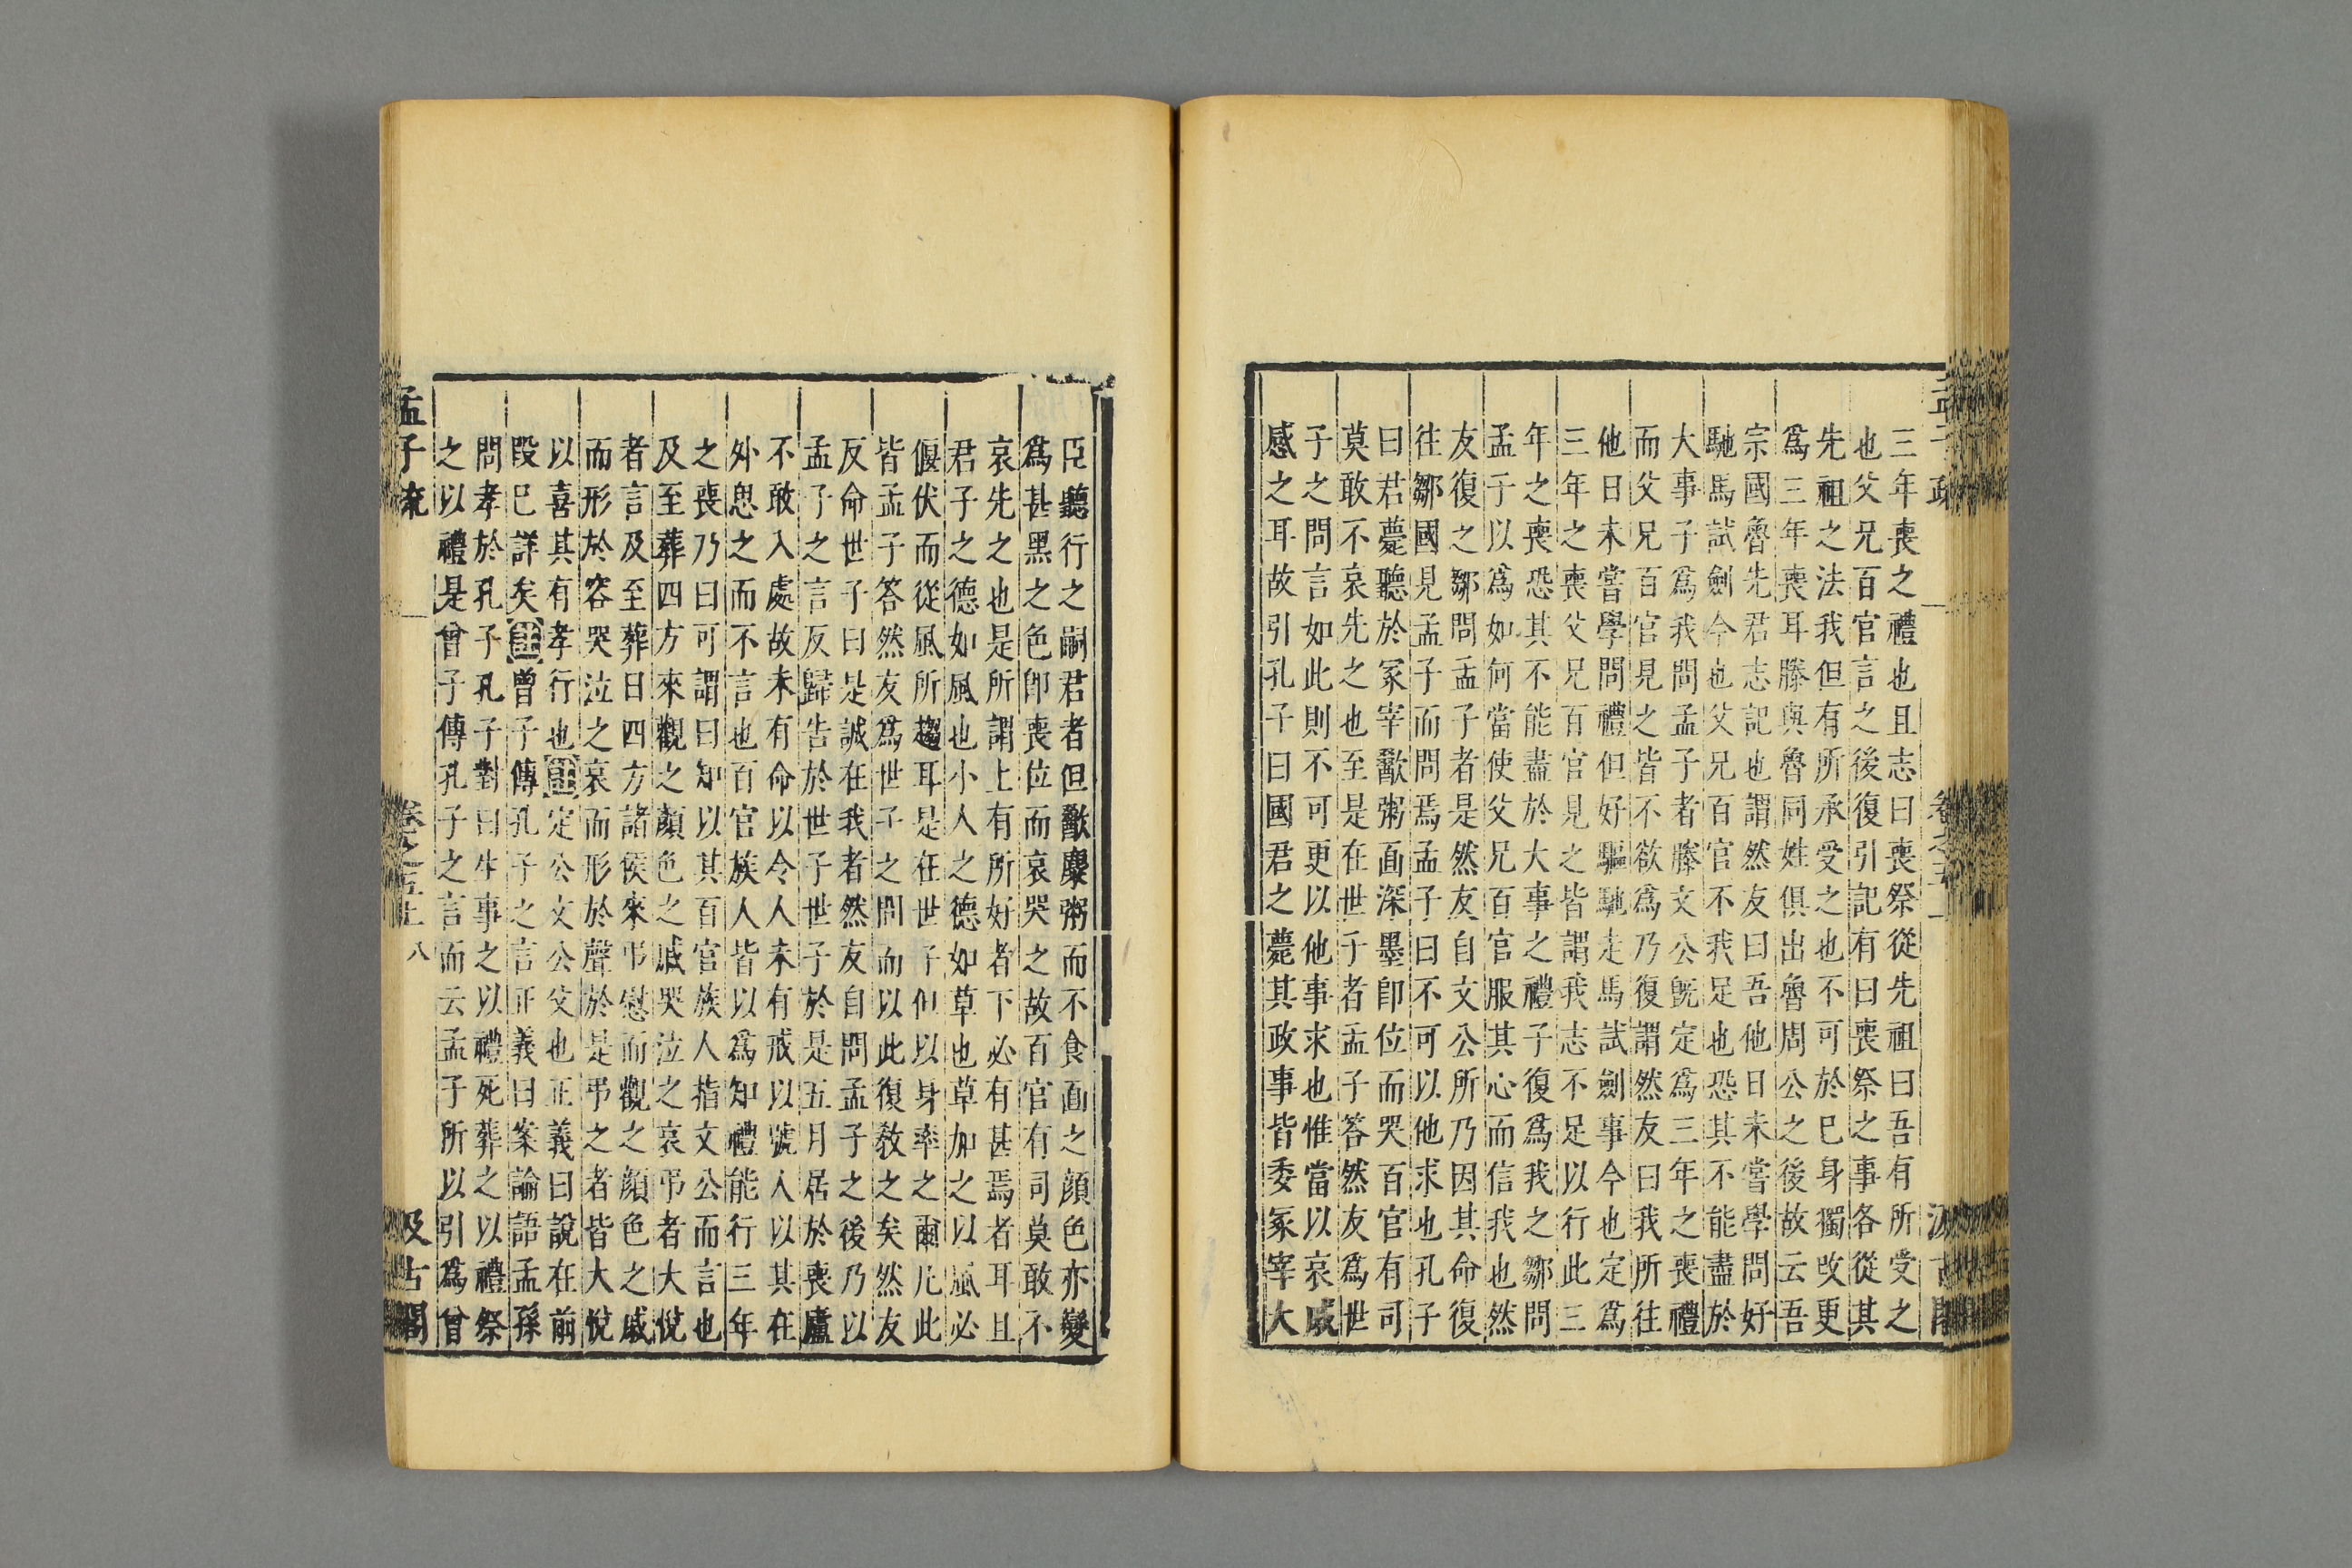 三年喪之禮也且志曰喪祭從先祖曰吾有所受之
也父兄百官言之後復引記有曰喪祭之事各從其
先祖之法我但有所承受之也不可於巳身獨改更
爲三年喪耳滕與魯同姓俱出魯周公之後故云吾
宗國魯先君志記也謂然友曰吾他日未嘗學問好
馳馬試劍今也父兄百官不我足也恐其不能盡於
大事子爲我問孟子者滕文公旣定爲三年之喪禮
而父兄百官見之皆不欲爲乃復謂然友曰我所往
他日未嘗學問禮但好驅馳走馬試劍事今也定爲
三年之喪父兄百官見之皆謂我志不足以行此三
年之喪恐其不能盡於大事之禮子復爲我之鄒問
孟于以爲如何當使父兄百官服其心而信我也然
友復之鄒問孟子者是然友自文公所乃因其命復
往鄒國見孟子而問焉孟子曰不可以他求也孔子
曰君薨聽於冢宰歠粥面深墨卽位而哭百官有司
莫敢不哀先之也至是在世于者孟子答然友爲世
子之問言如此則不可更以他事求也惟當以哀戚
感之耳故引孔子曰國君之薨其政事皆委冢宰大
臣聽行之嗣君者但歠麋粥而不食面之顔色亦變
爲甚黑之色卽喪位而哀哭之故百官有司莫敢不
哀先之也是所謂上有所好者下必有甚焉者耳且
君子之德如風也小人之德如草也草加之以風必
偃伏而從風所趨耳是在世子但以身率之爾凡此
皆孟子答然友爲世子之問而以此復敎之矣然友
反命世子曰是誠在我者然友自問孟子之後乃以
孟子之言反歸告於世子世子於是五月居於喪廬
不敢入處故未有命以令人未有戒以號人以其在
外思之而不言也百官族人皆以爲知禮能行三年
之喪乃曰可謂曰知以其百官族人指文公而言也
及至葬四方來觀之顔色之戚哭泣之哀弔者大悅
者言及至葬日四方諸侯來弔慰而觀之顔色之戚
而形於容哭泣之哀而形於聲於是弔之者皆大悅
以喜其有孝行也注定公文公父也正義曰說在前
段巳詳矣注曾子傳孔子之言正義曰案論語孟孫
問孝於孔子孔子對曰生事之以禮死葬之以禮祭
之以禮是曾子傳孔子之言而云孟子所以引爲曾
孟子疏 卷之五上 八 汲古閣